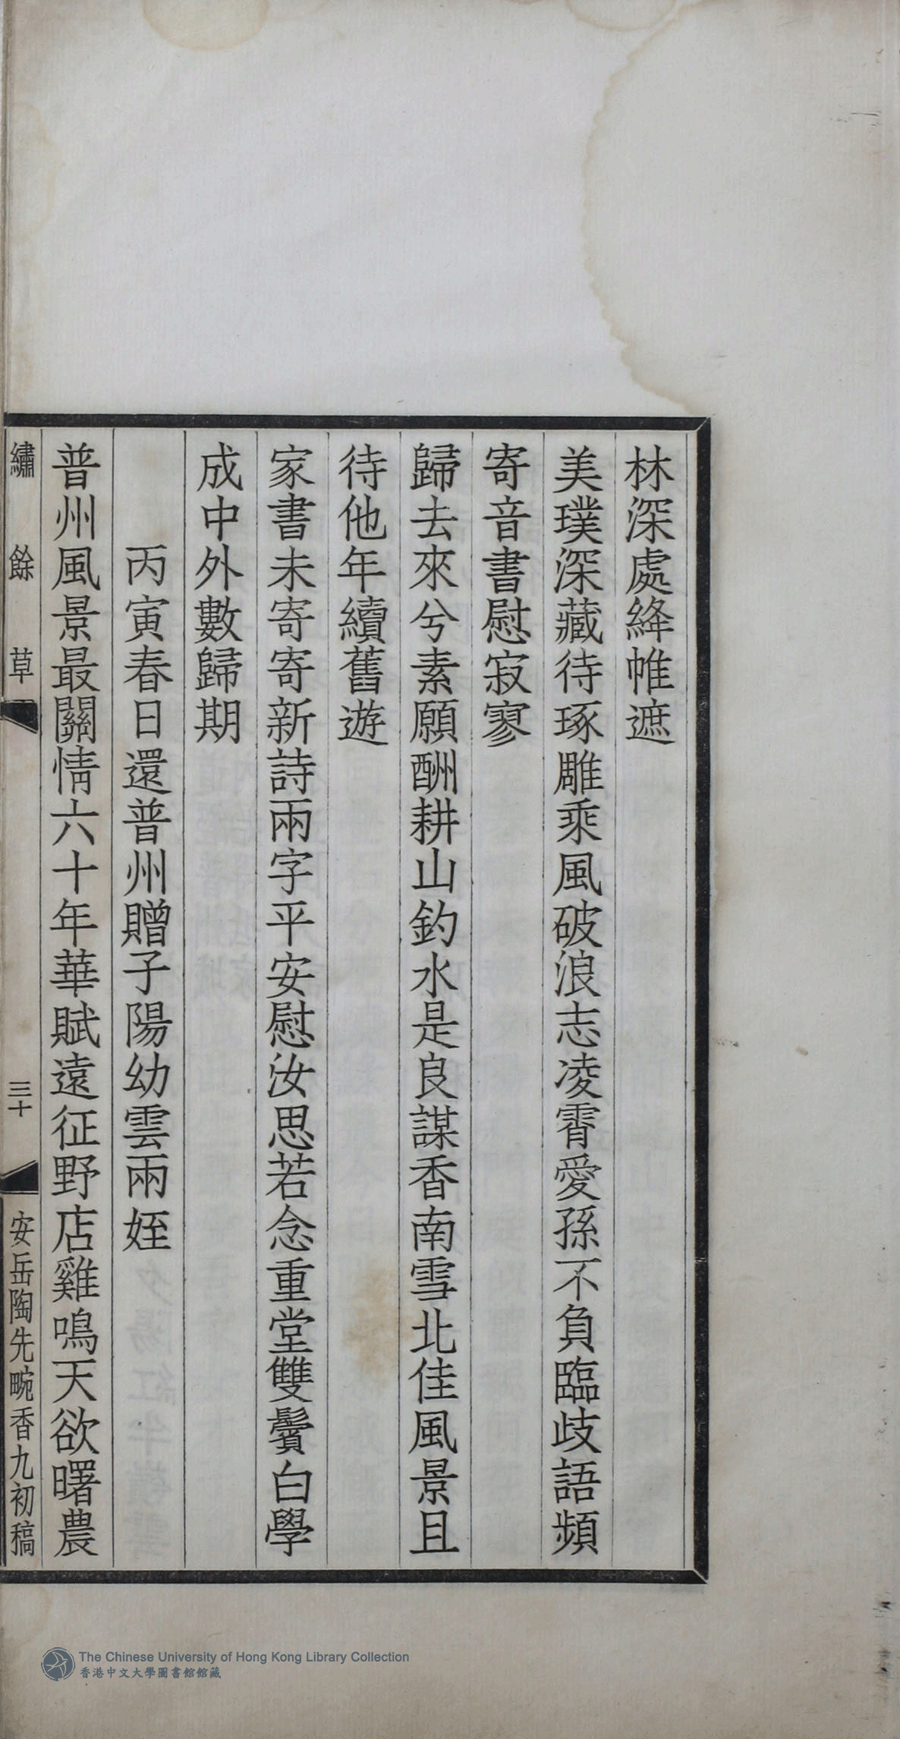 林深處絳帷遮
美璞深藏待琢雕乘風破浪志凌霄愛孫不負臨歧語頻
寄音書慰寂寥
歸去來兮素願酬耕山釣水是良謀香南雪北佳風景且
待他年續舊遊
家書未寄寄新詩兩字平安慰汝思若念重堂雙鬢白學
成中外數歸期
丙寅春日還普州贈子陽幼雲兩姪
普州風景最關情六十年華賦遠征野店雞鳴天欲曙農
繡餘草
三十
安岳陶先畹香九初稿
The Chinese University of Hong Kong Library Collection
香港中文大學圖書館館藏